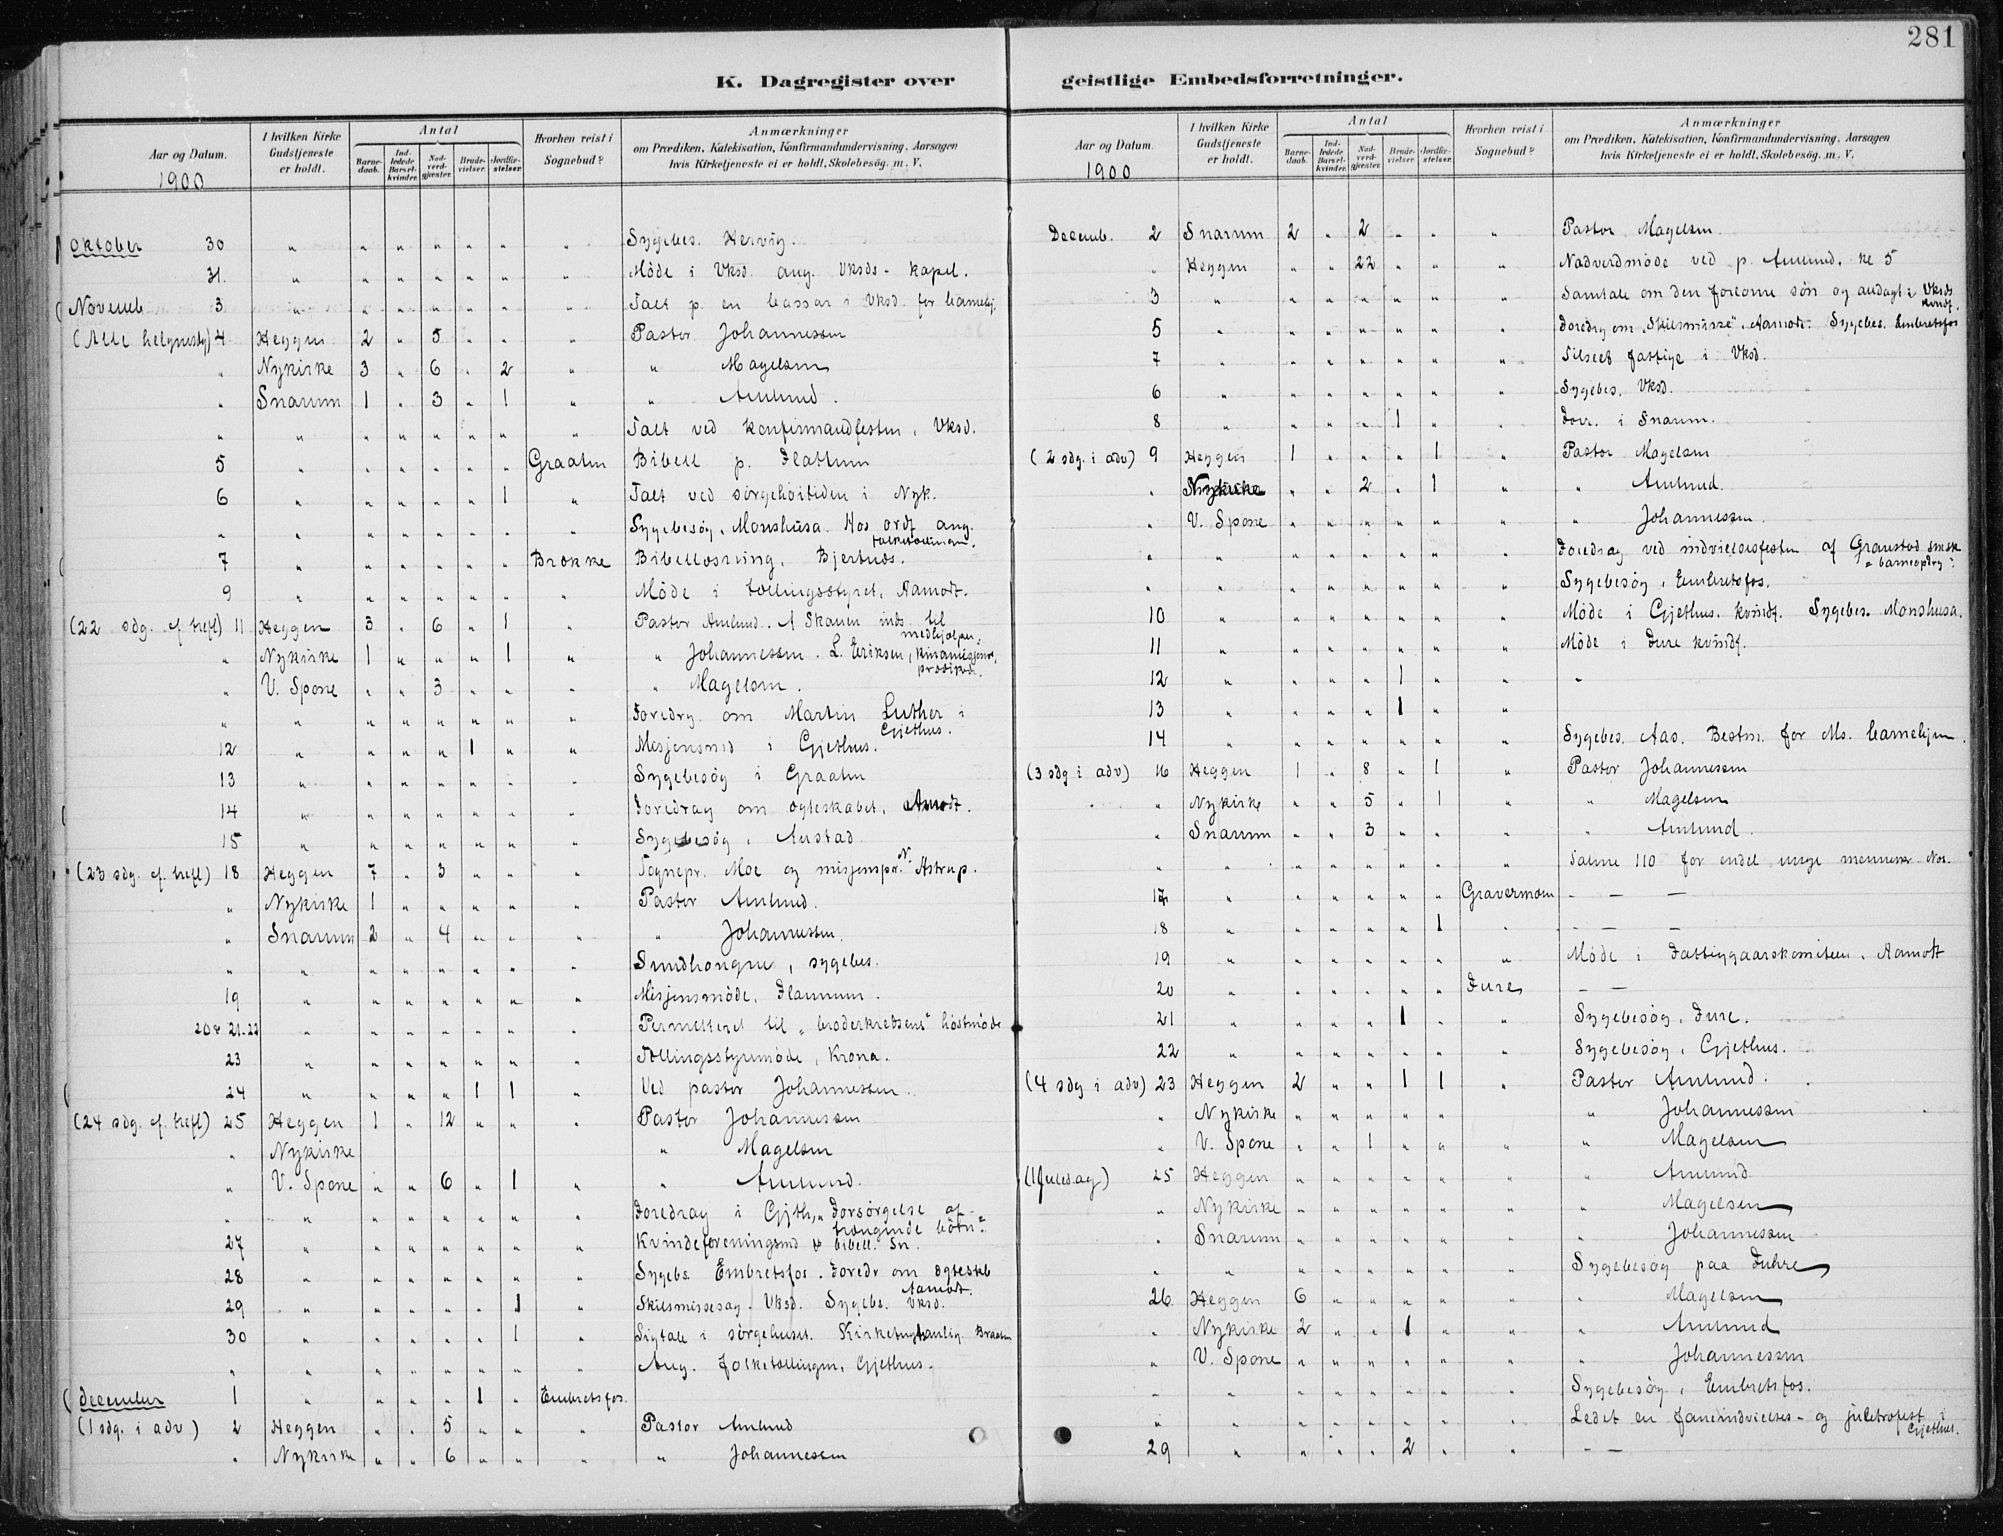 281
K. Dagregister over geistlige Embedsforretninger.
Aar og Datum. | I hvilken Kirke Gudstjeneste er holdt. | Antal | Barnedaab. | Indledede Barselkvinder. | Nadverdgjæster. | Brudevielser. | Jordfæstelser. | Hvorhen reist i Sognebud? | Anmærkninger om Prædiken, Katekisation, Konfirmandundervisning, Aarsagen hvis Kirketjeneste ei er holdt, Skolebesøg. m. V.
1900
Oktober 30 " " " " " " " Sygebes. Hervig.
31. " " " " " " " Møde i Vksd. ang. Vksds-kapel.
Novemb 3 " " " " " " " Talt p. en bassar i Vksd. for barnehj.
(Alle helgensdg) 4 Heggen 2 " 5 " " " Pastor Johannessen
" Nykirke 3 " 6 " 2 " " Magelsen
" Snarum 1 " 3 " 1 " " Amlund.
" " " " " " " " Talt ved konfirmandfesten, Vksd.
5 " " " " " " Graaten Bibell p. Flattum
6 " " " " " 1 " Talt ved sørgehøitiden i Nyk.
" " " " " " " " Sygebesøg, Monshusa. Hos ordf ang. folketællingen.
7 " " " " " " Brekke Bibellæsning, Bjertnæs.
9 " " " " " " " Møde i tællingsstyret, Aamodt.
(22 sdg. ef. trefl) 11 Heggen 3 " 6 " 1 " Pastor Amlund. A Skauen inds. til medhjælper.
" Nykirke 1 " " " 1 " " Johannessen. L. Eriksen, kinamisjonær, prædiked.
" V. Spone " " 3 " " " " Magelsen.
" " " " " " " " Foredrg. om Martin Luther i Gjethus.
12 " " " " 1 " " Misjonsmd i Gjethus.
13 " " " " " " " Sygebesøg i Graaten
14 " " " " " " " Foredrag om ægteskabet, Amodt.
15 " " " " " " " Sygebesøg, Austad
(23 sdg. ef. trefl) 18 Heggen 7 " 3 " " " Sognepr. Moe og misjonspr. N. Astrup.
" Nykirke 1 " " " " " Pastor Amlund.
" Snarum 2 " 4 " " " " Johannessen.
" " " " " " " " Sundhongen, sygebes.
19 " " " " " " " Misjonsmøde, Flannum.
20 & 21-22 " " " " " " " Permitteret til "broderkredsens" høstmøde
23 " " " " " " " Tællingsstyremøde, Krona.
24 " " " " 1 1 " Ved pastor Johannessen.
(24 sdg. ef. trefl) 25 Heggen 1 " 12 " " " Pastor Johannessen
" Nykirke " Magelsen
" V. Spone " " 6 " 1 " " Amlund.
" " " " " " " " Foredrag i Gjeth, "Forsørgelse af trængende børn".
27 " " " " " " " Kvindeforeningsmd & bibell. Sn.
28 " " " " " " " Sygebs. Embretsfos. Foredr om ægteskb Aamodt.
29 " " " " " 1 " Skilsmissesag. Vksd. Sygebs. Vksd.
30 " " " " " 1 " Ligtale i sørgehuset. Braaten
" " " " " " " " Ang. folketællingen, Gjethus.
December 1 " " " " 1 " Embretsfos.
(1 sdg. i adv) 2 Heggen " " 5 " " " Pastor Amlund
" Nykirke " " 6 " " " " Johannessen
Aar og Datum. | I hvilken Kirke Gudstjeneste er holdt. | Antal | Barnedaab. | Indledede Barselkvinder. | Nadverdgjæster. | Brudevielser. | Jordfæstelser. | Hvorhen reist i Sognebud? | Anmærkninger om Prædiken, Katekisation, Konfirmandundervisning, Aarsagen hvis Kirketjeneste ei er holdt, Skolebesøg. m. V.
1900
Decemb. 2 Snarum 2 " 2 " " " Pastor Magelsen.
" Heggen " " 22 " " " Nadverdmøde ved p. Amlund, kl 5
3 " " " " " " " Samtale om den fortabte søn og andagt i Vksds kvindf.
5 " " " " " " " Foredrg om "Skilsmisse", Aamodt. Sygebes. Embretsfos
7 " " " " " " " Tilseet fattige i Vksd.
6 " " " " " " " Sygebes. Vksd.
8 " " " " 1 " " i Snarum.
(2 sdg. i adv) 9 Heggen 1 " " " 1 " Pastor Magelsen
" Nykirke " " 2 " 1 " " Amlund.
" V. Spone " " " " " " " Johannessen.
" " " " " " " " Foredrag ved indvielsesfesten af Gravstad
" " " " " " " " Sygebesøg, Embretsfos.
10 " " " " " " " Møde i Gjethus. kvindf. Sygebes. Monshusa.
11 " " " " " " " Møde i Fure kvindf.
12 " " " " 1 " " "
13 " " " " 1 " "
14 " " " " " " " Sygebes. Aas. Bestm. for Ms. barnehjem.
(3 sdg i adv) 16 Heggen 1 " 8 " 1 " Pastor Johannessen
" Nykirke " " 5 " 1 " " Magelsen
" Snarum " " 3 " " " " Amlund.
" " " " " " " " Salme 110 for endel unge mennesker
17 " " " " " " Gravermoen – – –
18 " " " " " 1 " – – –
19 " " " " " " " Møde i Fattiggaarskomiteen, Aamott
20 " " " " " " Fure – –
21 " " " " 1 " " Sygebesøg, Fure.
22 " " " " " " " Sygebesøg, Gjethus.
(4 sdg i adv) 23 Heggen 2 " " 1 1 " Pastor Amlund.
" Nykirke " " " " " " " Johannessen
" V. Spone " " 1 " " " " Magelsen
(1 Juledag) 25 Heggen " " " " " " " Amlund
" Nykirke " " " " " " " Magelsen
" Snarum " " " " " " " Johannessen
" " " " " " " " Sygebesøg paa Fuhre
26 Heggen 6 " " " " " " Magelsen
" Nykirke 2 " " 1 " " " Amlund
" V. Spone " " " " " " " Johannessen
" " " " " " " " Sygebesøg, Embretsfos.
" " " " " " " " Ledet en faneindvielses- og juletræfest i Gjethus.
29 " " " " 2 " " – –